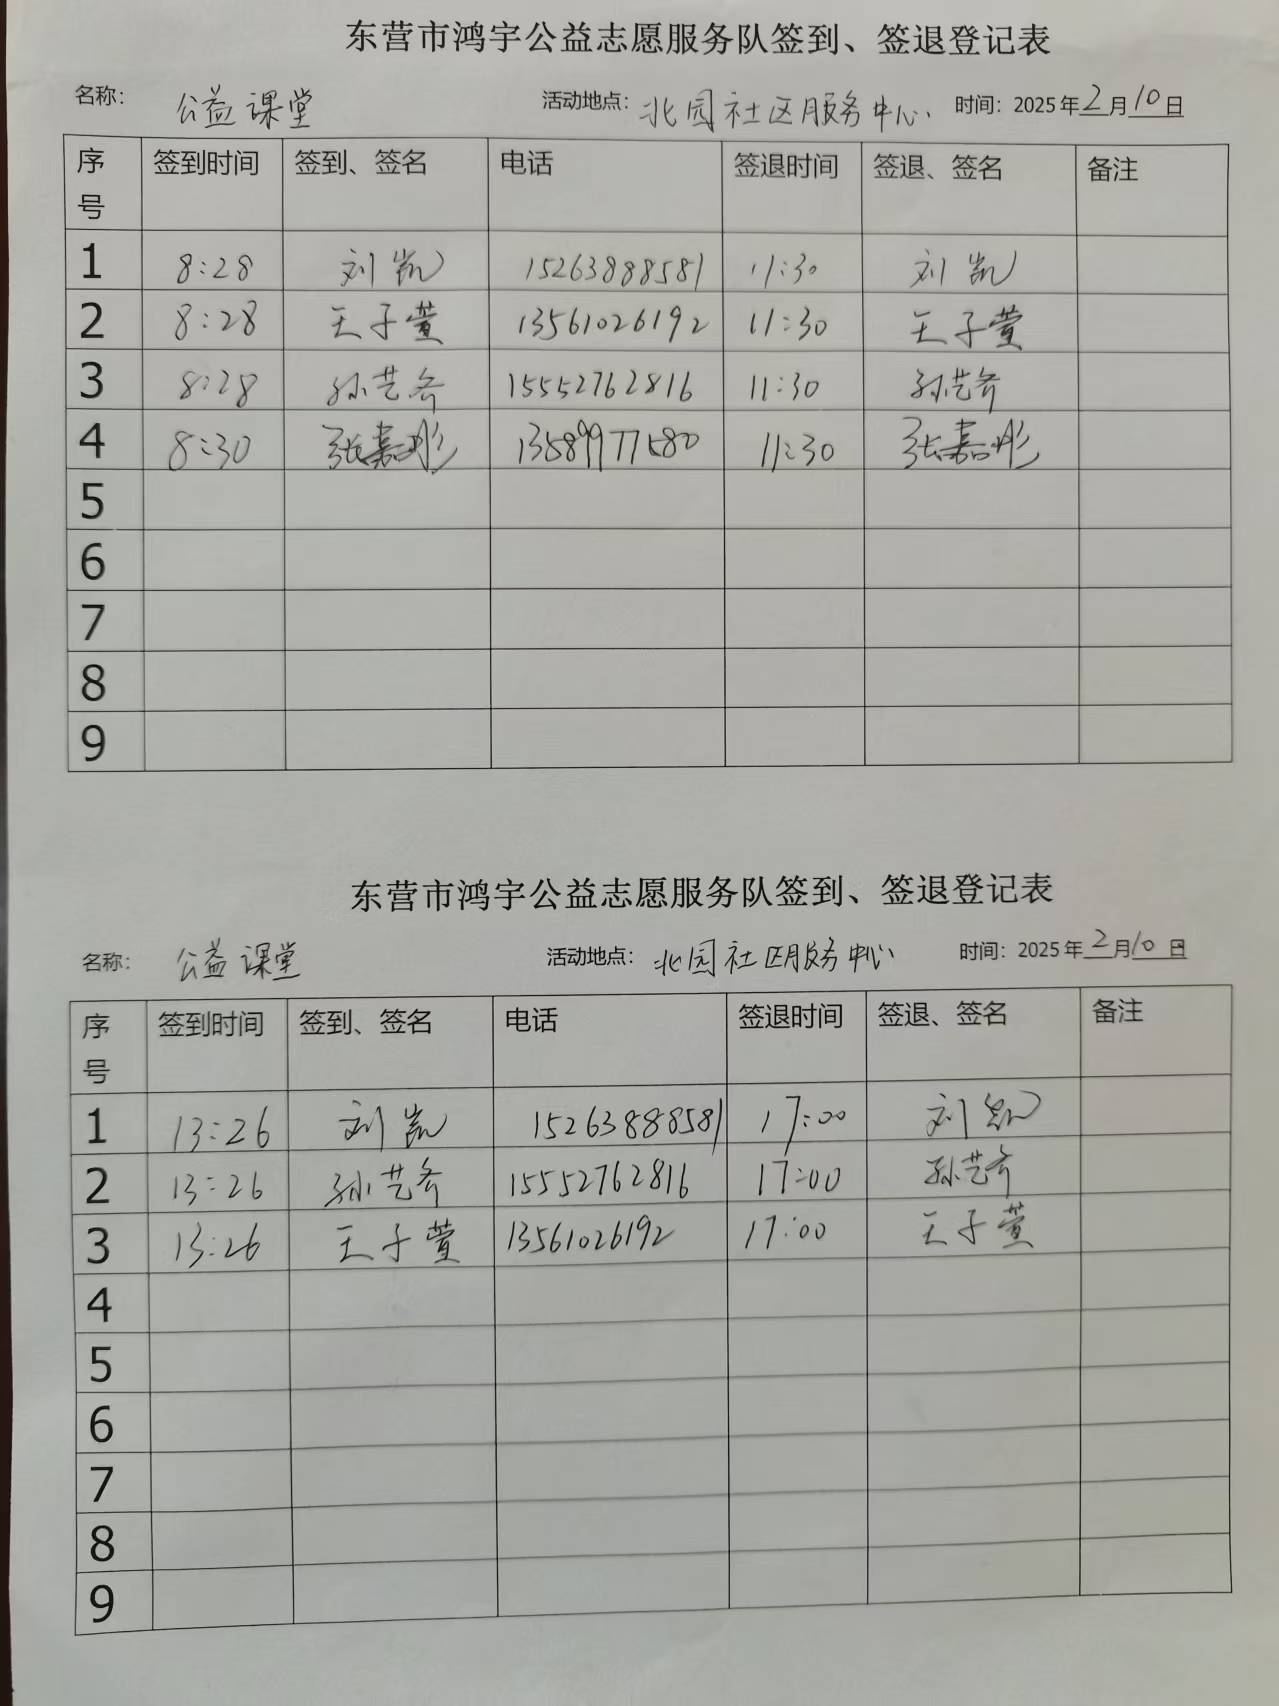 东营市鸿宇公益志愿服务队签到、签退登记表
名称： 公益课堂 活动地点： 北园社区服务中心 时间：2025年2月10日
序号 签到时间 签到、签名 电话 签退时间 签退、签名 备注
1 8:28 刘凯 15263888581 11:30 刘凯
2 8:28 王子萱 13561026192 11:30 王子萱
3 8:28 孙艺齐 15552762816 11:30 孙艺齐
4 8:30 张嘉彤 13589977580 11:30 张嘉彤
5
6
7
8
9
东营市鸿宇公益志愿服务队签到、签退登记表
名称： 公益课堂 活动地点： 北园社区服务中心 时间：2025年2月10日
序号 签到时间 签到、签名 电话 签退时间 签退、签名 备注
1 13:26 刘凯 15263888581 17:00 刘凯
2 13:26 孙艺齐 15552762816 17:00 孙艺齐
3 13:26 王子萱 13561026192 17:00 王子萱
4
5
6
7
8
9